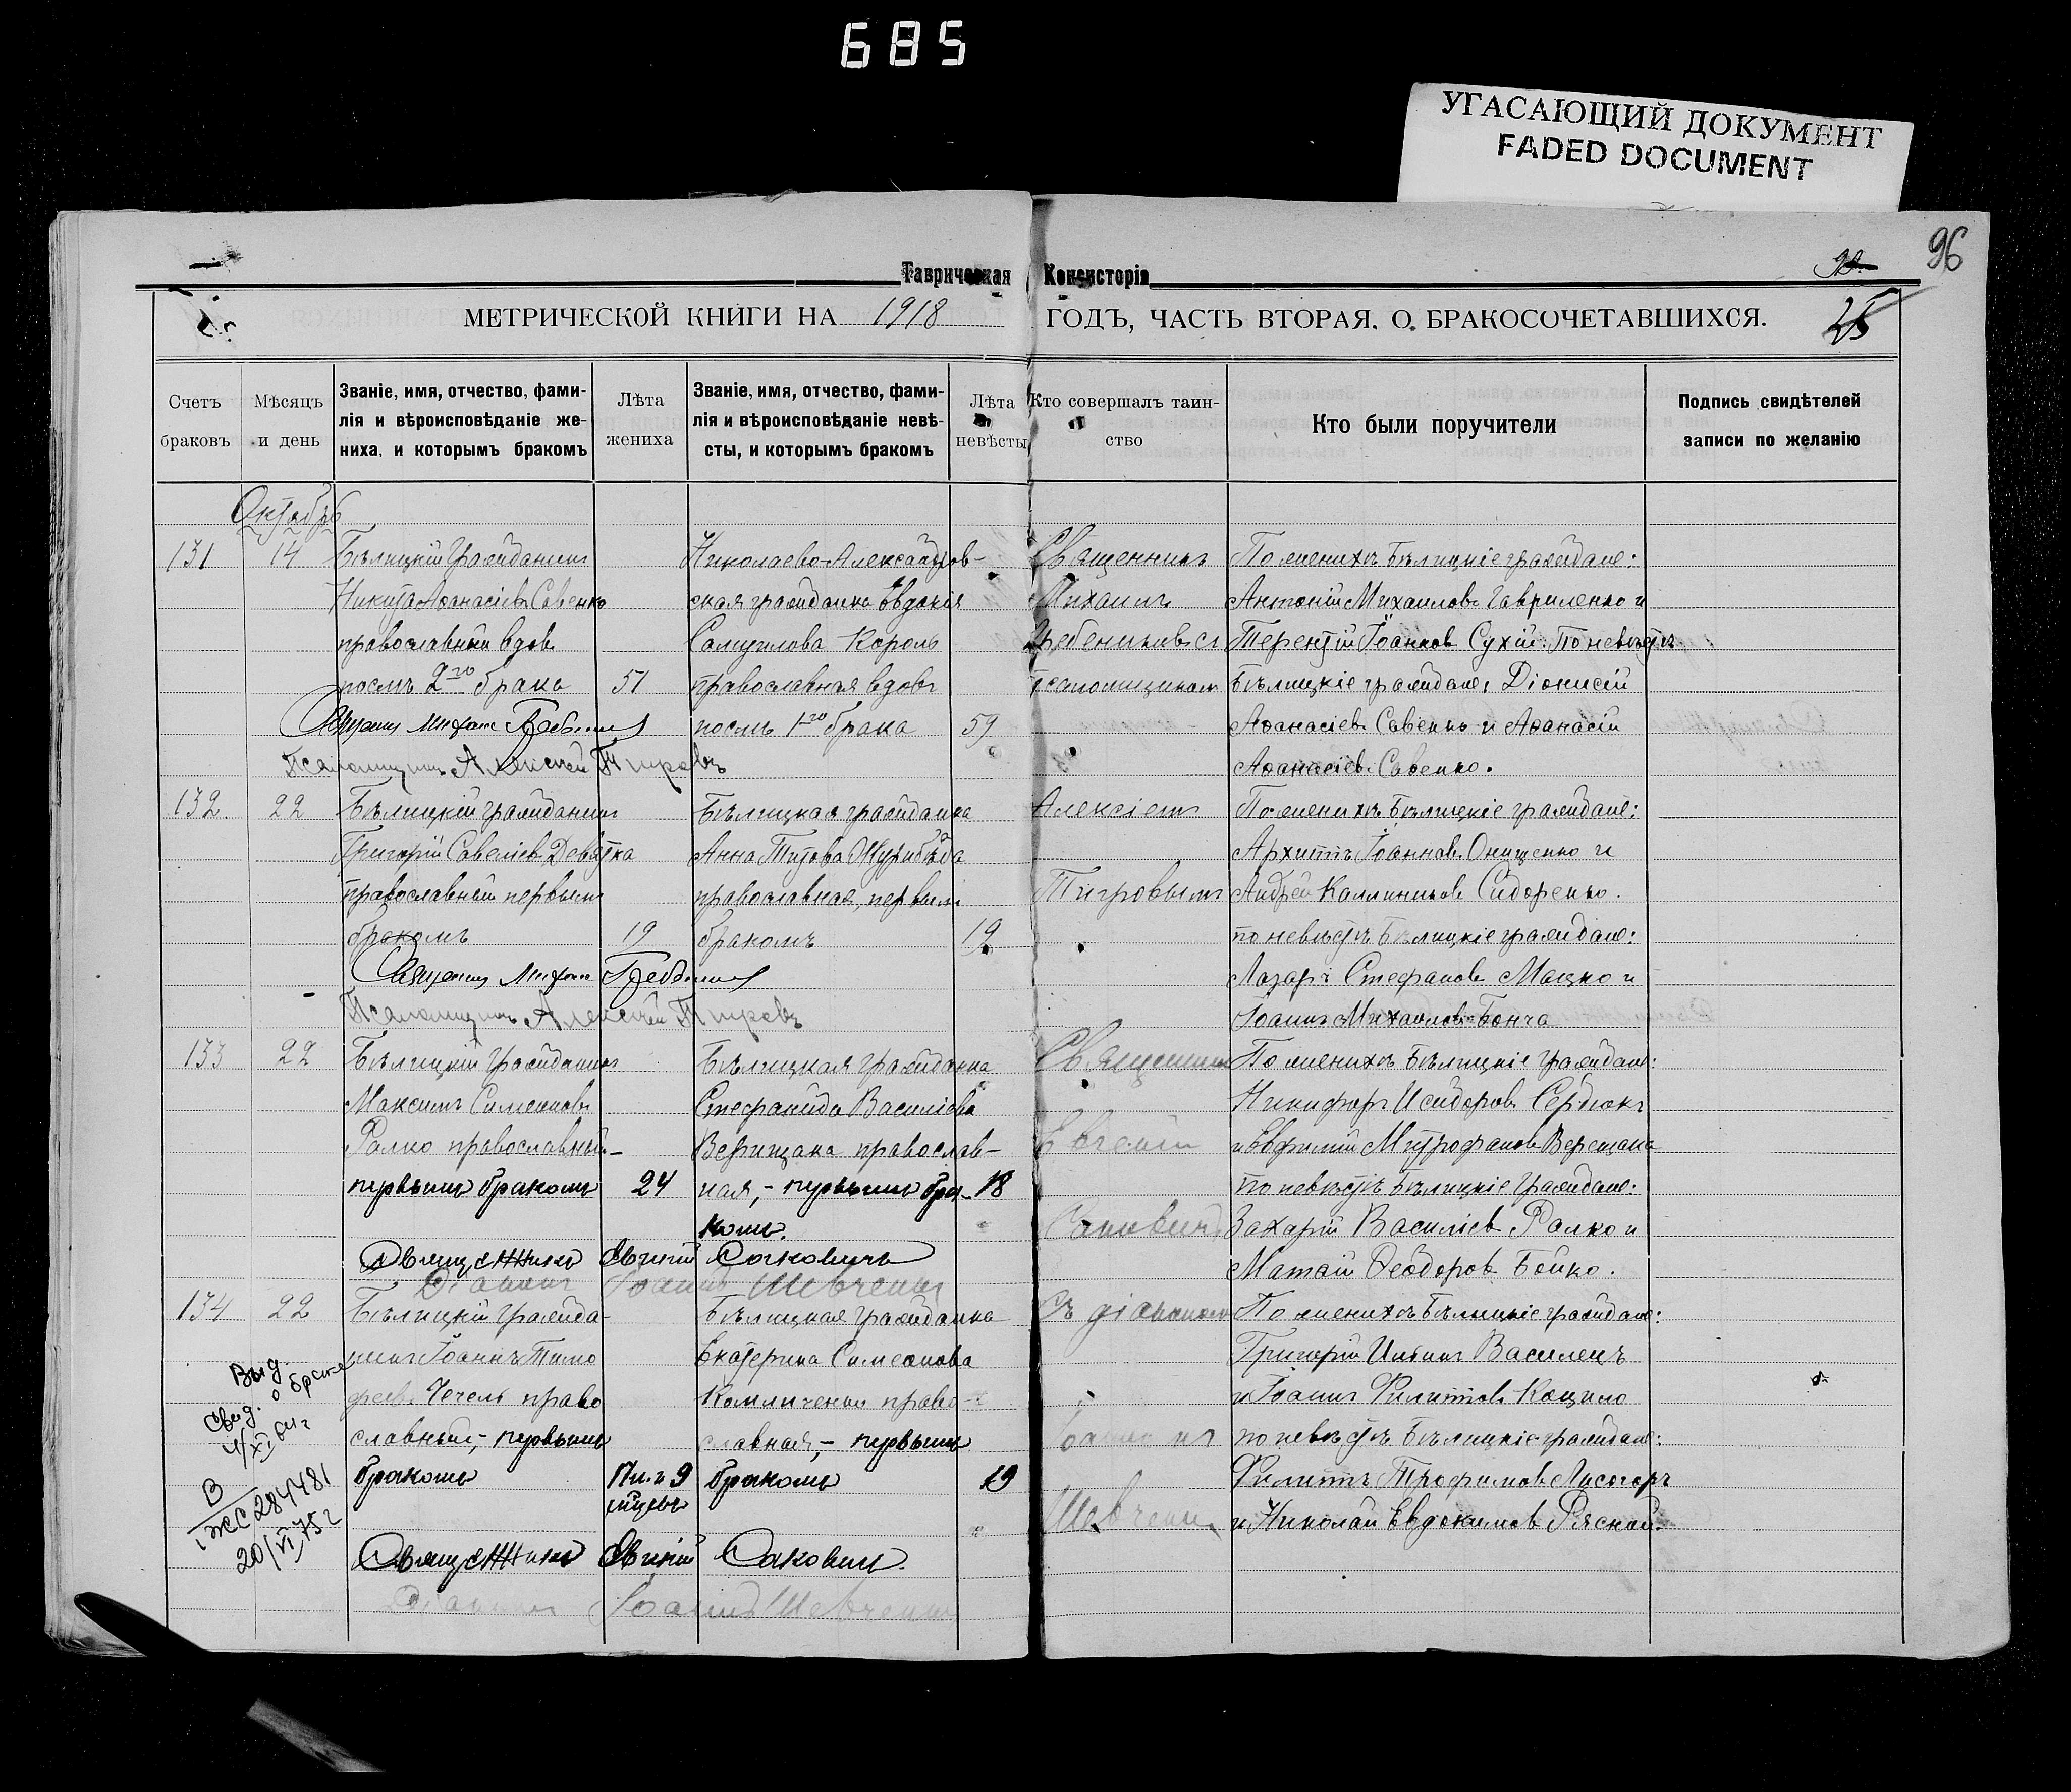 685
УГАСАЮЩИЙ ДОКУМЕНТ
FADED DOCUMENT
96
Таврическая Консисторія
МЕТРИЧЕСКОЙ КНИГИ НА 1918 ГОДЪ, ЧАСТЬ ВТОРАЯ. О БРАКОСОЧЕТАВШИХСЯ.
25
Счетъ браковъ
Мѣсяцъ и день
Званіе, имя, отчество, фами-
лія и вѣроисповѣданіе же-
ниха, и которымъ бракомъ
Лѣта жениха
Званіе, имя, отчество, фами-
лія и вѣроисповѣданіе невѣ-
сты, и которымъ бракомъ
Лѣта невѣсты
Кто совершалъ таин-
ство
Кто были поручители
Подпись свидѣтелей
записи по желанію
Октябрь
131
14
Бѣлицкій гражданинъ
Никита Аѳанасіевъ Савенко
православный вдов
послѣ 2го брака
51
Николаево-Александров-
ская гражданка Евдокія
Самуилова Король
православная вдова
послѣ 1го брака
59
Священникъ
Михаилъ
Гребениковъ съ
псаломщикомъ
По женихѣ Бѣлицкіе граждане:
Антоній Михаиловъ Гавриленко и
Терентій Іоанновъ Сухій: По невѣстѣ
Бѣлицкіе граждане: Діонисій
Аѳанасіевъ Савенко и Аѳанасій
Аѳанасіевъ Савенко.
Псаломщикъ Алексій Тигровъ
132.
22
Бѣлицкій гражданинъ
Григорій Савеліевъ Девятка
православный первымъ
бракомъ
19
Бѣлицкая гражданка
Анна Титова Журибѣда
православная, первымъ
бракомъ
19
Алексіемъ
Тигровымъ
По женихѣ Бѣлицкіе граждане:
Архиппъ Іоанновъ Онищенко и
Андрей Каллиниковъ Сидоренко.
по невѣстѣ Бѣлицкіе граждане:
Лазарь Стефановъ Мацко и
Іоаннъ Михаиловъ Бонча
Псаломщикъ Алексій Тигровъ
133
22
Бѣлицкій гражданинъ
Максимъ Симеоновъ
Ралко православный
первымъ бракомъ
24
Бѣлицкая гражданка
Стефанида Василіева
Верищака православ-
ная,- первымъ бра-
комъ.
18
Священникъ
Евгеній
Саковичъ
По женихѣ Бѣлицкіе граждане:
Никифоръ Исидоровъ Сердюкъ
и Евфимій Митрофановъ Верещака
по невѣстѣ Бѣлицкіе граждане:
Захарій Василіевъ Ралко и
Матѳій Ѳеодоровъ Бойко.
Священникъ Евгеній Саковичъ
Діаконъ Іоаннъ Шевченко
134
22
Бѣлицкій гражда-
нинъ Іоаннъ Тимо
феев. Чечель право
славный,- первымъ
бракомъ
Бѣлицкая гражданка
Екатерина Симеонова
право-
славная,- первымъ
бракомъ
19
Съ діакономъ
Іоанномъ
Шевченко
По женихѣ Бѣлицкіе граждане:
Григорій Василецъ
и Іоаннъ Филипповъ Кацило
по невѣстѣ Бѣлицкіе граждане:
Филиппъ Трофимовъ Лисогоръ
и Николай Евдокимовъ Ряской.
Выд.
свид. о браке
Священникъ Евгеній Саковичъ.
Діаконъ Іоаннъ Шевченко